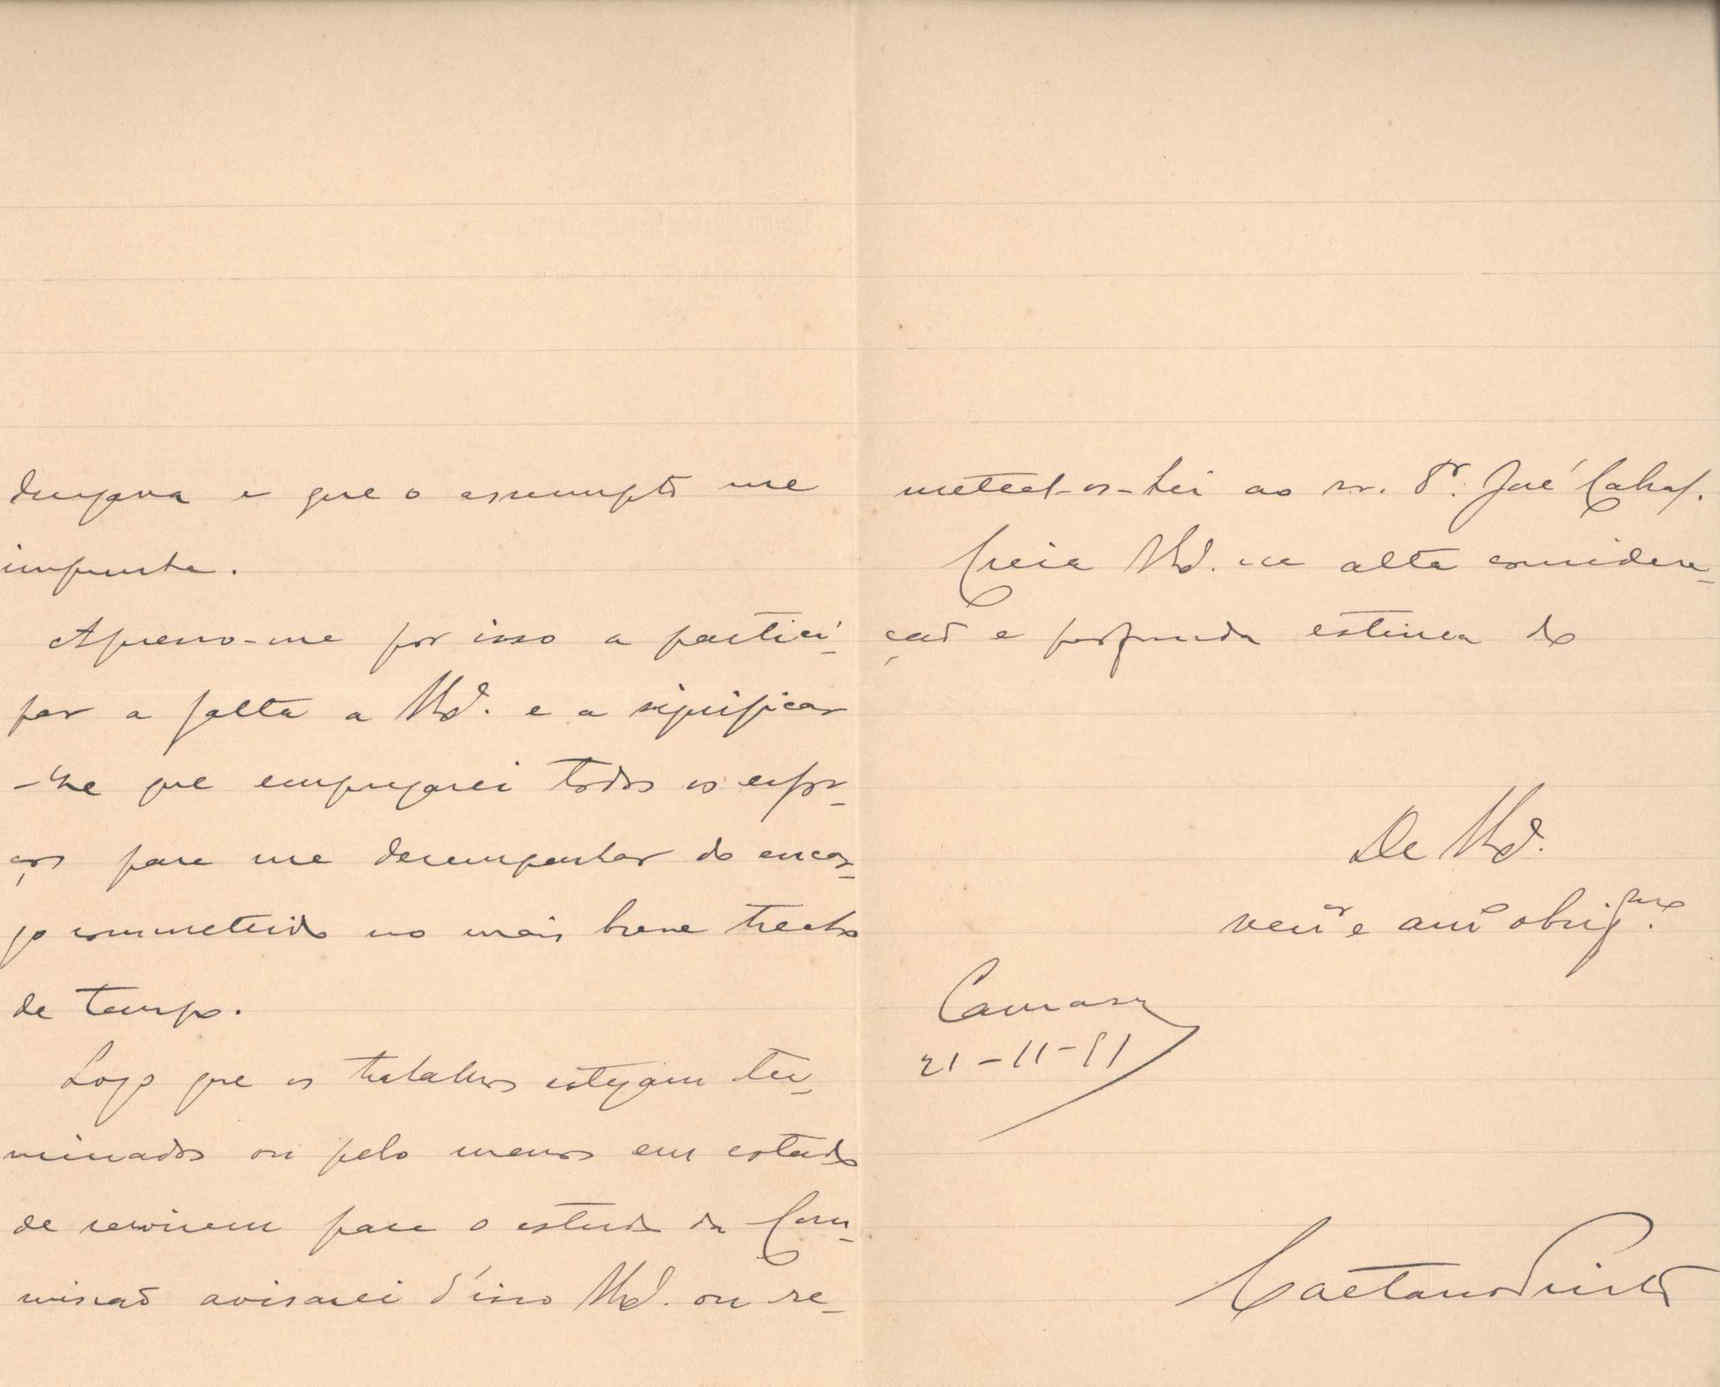 e que o assumpto me
impunha.
Apresso-me por isso a partici-
par a falta a V. Ex.ª e a significar
-lhe que empregarei todos os esfor-
ços para me desempenhar do encar-
go commettido no mais breve trecho
de tempo.
Logo que os trabalhos estejam ter-
minados ou pelo menos em estado
de servirem para o estudo da Com-
missaõ avisarei d'isso V. Ex.ª ou re-
metel-os-hei ao sr. Dr. José
Creia V. Ex.ª na alta considera-
çaõ e profunda estima do
De V. Ex.ª
ven.or e am.o obrig.mo
21-11-91
Caetano Pinto